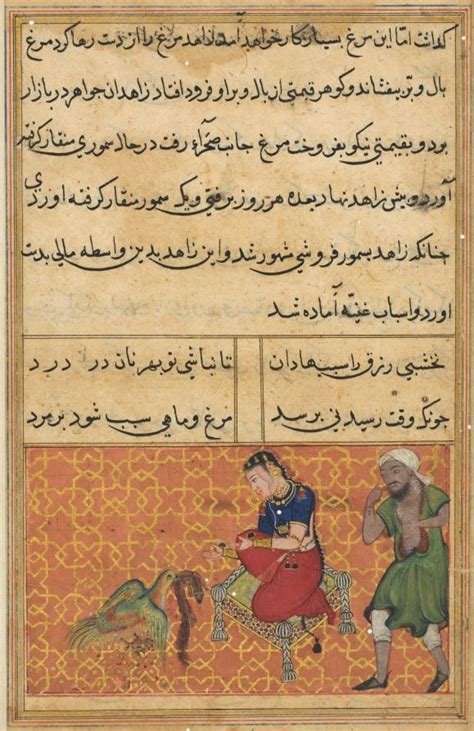 اما این مرغ بسیار بکار خواهد آمد زاهد مرغ را از دست رها کرد مرغ
بال و پر بیفشاند و گوهر قیمتی از بال و پر او فرود افتاد زاهد ان جواهر در بازار
برد و بقیمتی نیکو بفروخت مرغ جانب صحراء رفت در حال سموری منقار گرفته
آورد و پیش زاهد نهاد بعده هر روز برفتی و یک سمور منقار گرفته اوردی
چنانکه زاهد بسمور فروشی مشهور شد و این زاهد بدین واسطه مالی بدست
اورد و اسباب غنیه آماده شد
نخشبی رزق را سببها دان
تا نباشی تو بهر نان در درد
چونکه وقت رسیدنی برسد
مرغ و ماهی سبب شود بر مرد